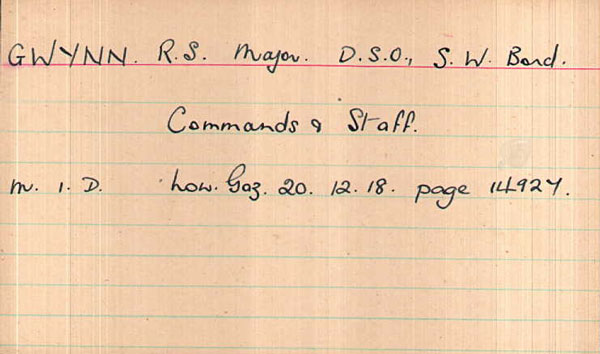 GWYNN. R.S. Major. D.S.O., S. W. Bord.
Commands & Staff.
M. I. D. Lon. Gaz. 20. 12. 18. page 14927.